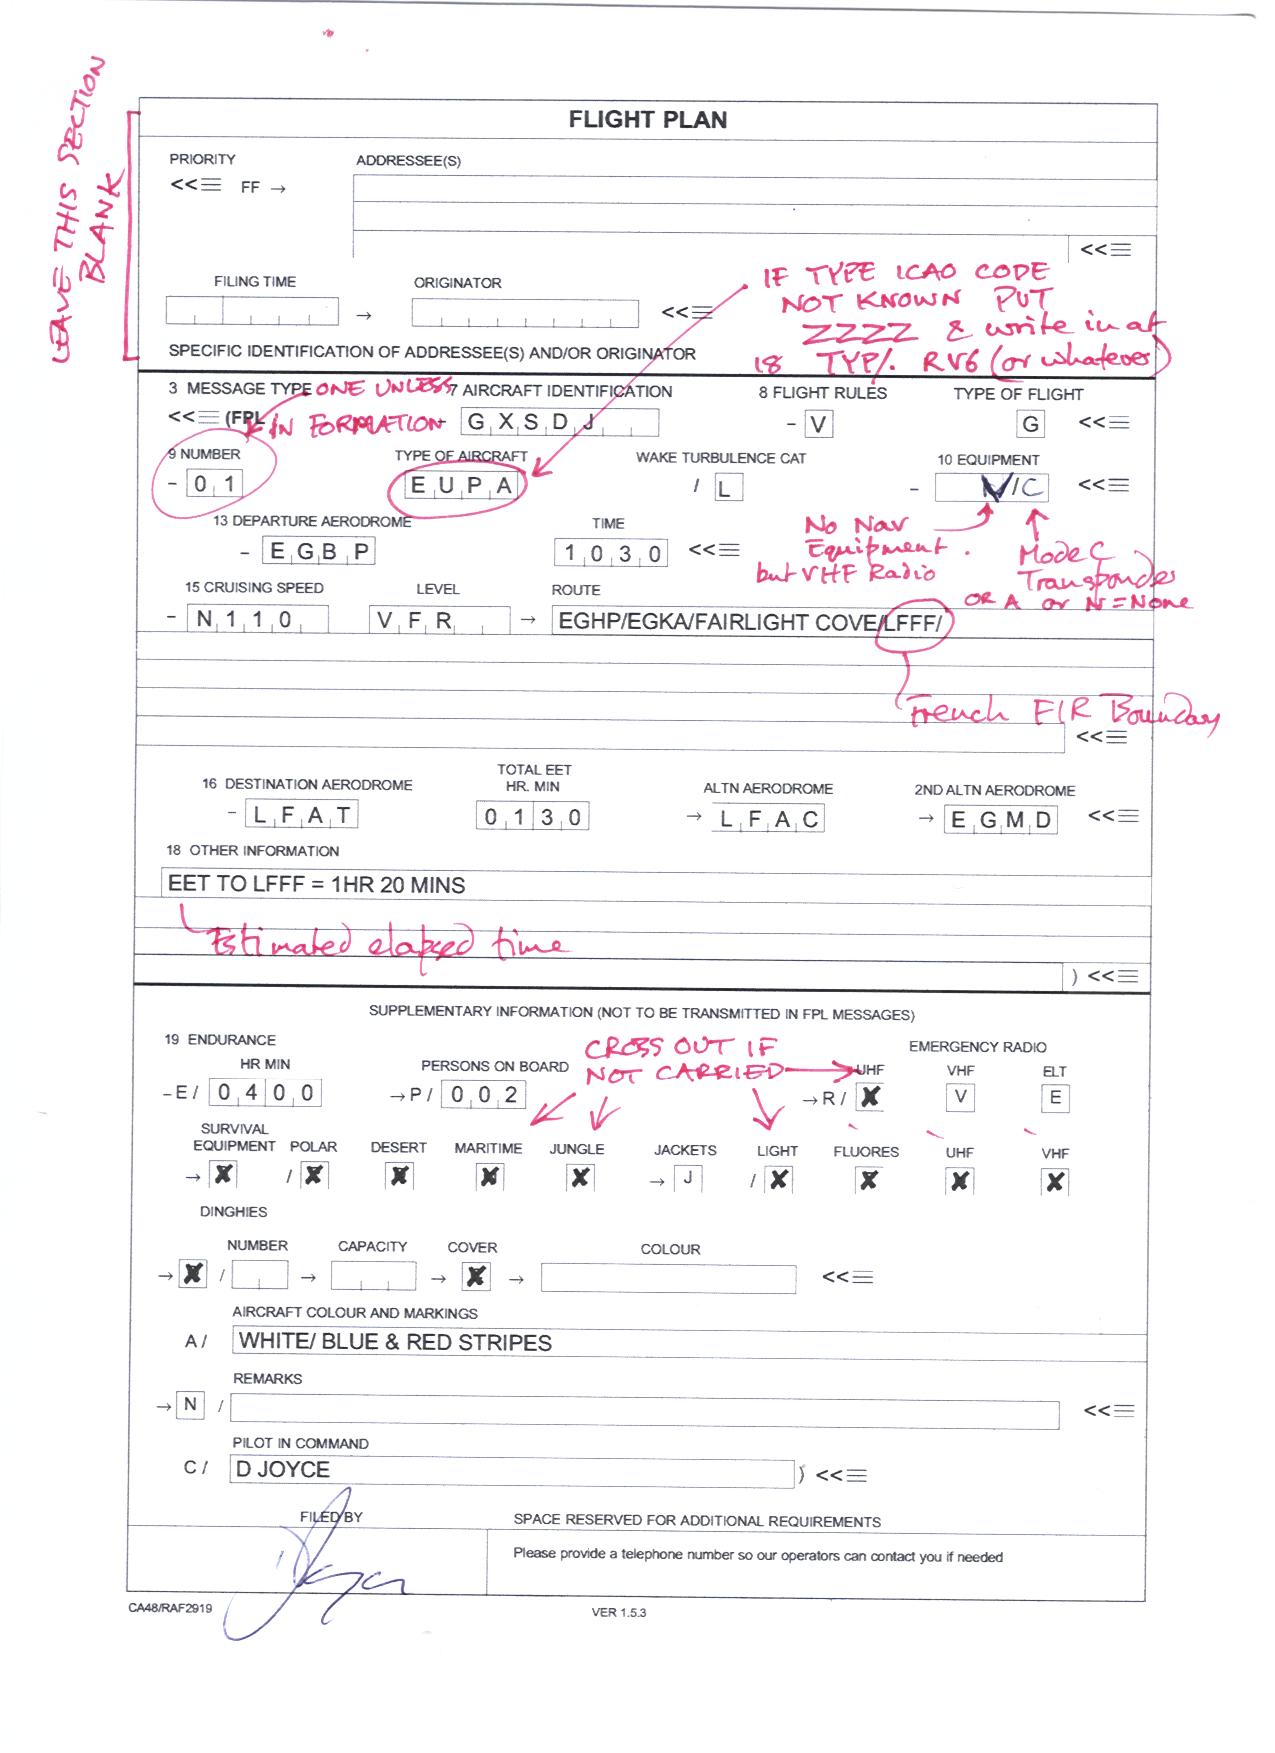 LEAVE THIS SECTION
BLANK
FLIGHT PLAN
PRIORITY ADDRESSEE(S)
<<≡ FF →
<<≡
FILING TIME ORIGINATOR
→ <<≡
IF TYPE ICAO CODE
NOT KNOWN PUT
ZZZZ & write in at
18 TYP/. RV6 (or whatever)
SPECIFIC IDENTIFICATION OF ADDRESSEE(S) AND/OR ORIGINATOR
3 MESSAGE TYPE 7 AIRCRAFT IDENTIFICATION 8 FLIGHT RULES TYPE OF FLIGHT
ONE UNLESS
IN FORMATION
<<≡ (FPL - GXSDJ - V G <<≡
9 NUMBER TYPE OF AIRCRAFT WAKE TURBULENCE CAT 10 EQUIPMENT
- 01 EUPA / L - V/C <<≡
No Nav
Equipment.
but VHF Radio
Mode C
Transponder
OR A or N=None
13 DEPARTURE AERODROME TIME
- EGBP 1030 <<≡
15 CRUISING SPEED LEVEL ROUTE
- N110 VFR → EGHP/EGKA/FAIRLIGHT COVE/LFFF/
French FIR Boundary
<<≡
16 DESTINATION AERODROME TOTAL EET HR. MIN ALTN AERODROME 2ND ALTN AERODROME
- LFAT 0130 → LFAC → EGMD <<≡
18 OTHER INFORMATION
EET TO LFFF = 1HR 20 MINS
Estimated elapsed time
) <<≡
SUPPLEMENTARY INFORMATION (NOT TO BE TRANSMITTED IN FPL MESSAGES)
CROSS OUT IF
NOT CARRIED
19 ENDURANCE EMERGENCY RADIO
HR MIN PERSONS ON BOARD UHF VHF ELT
-E/ 0400 →P/ 002 →R/ X V E
SURVIVAL
EQUIPMENT POLAR DESERT MARITIME JUNGLE JACKETS LIGHT FLUORES UHF VHF
→ X / X X X X → J / X X X X
DINGHIES
NUMBER CAPACITY COVER COLOUR
→ X / → → X → <<≡
AIRCRAFT COLOUR AND MARKINGS
A/ WHITE/ BLUE & RED STRIPES
REMARKS
→ N / <<≡
PILOT IN COMMAND
C/ D JOYCE ) <<≡
FILED BY SPACE RESERVED FOR ADDITIONAL REQUIREMENTS
Please provide a telephone number so our operators can contact you if needed
CA48/RAF2919 VER 1.5.3